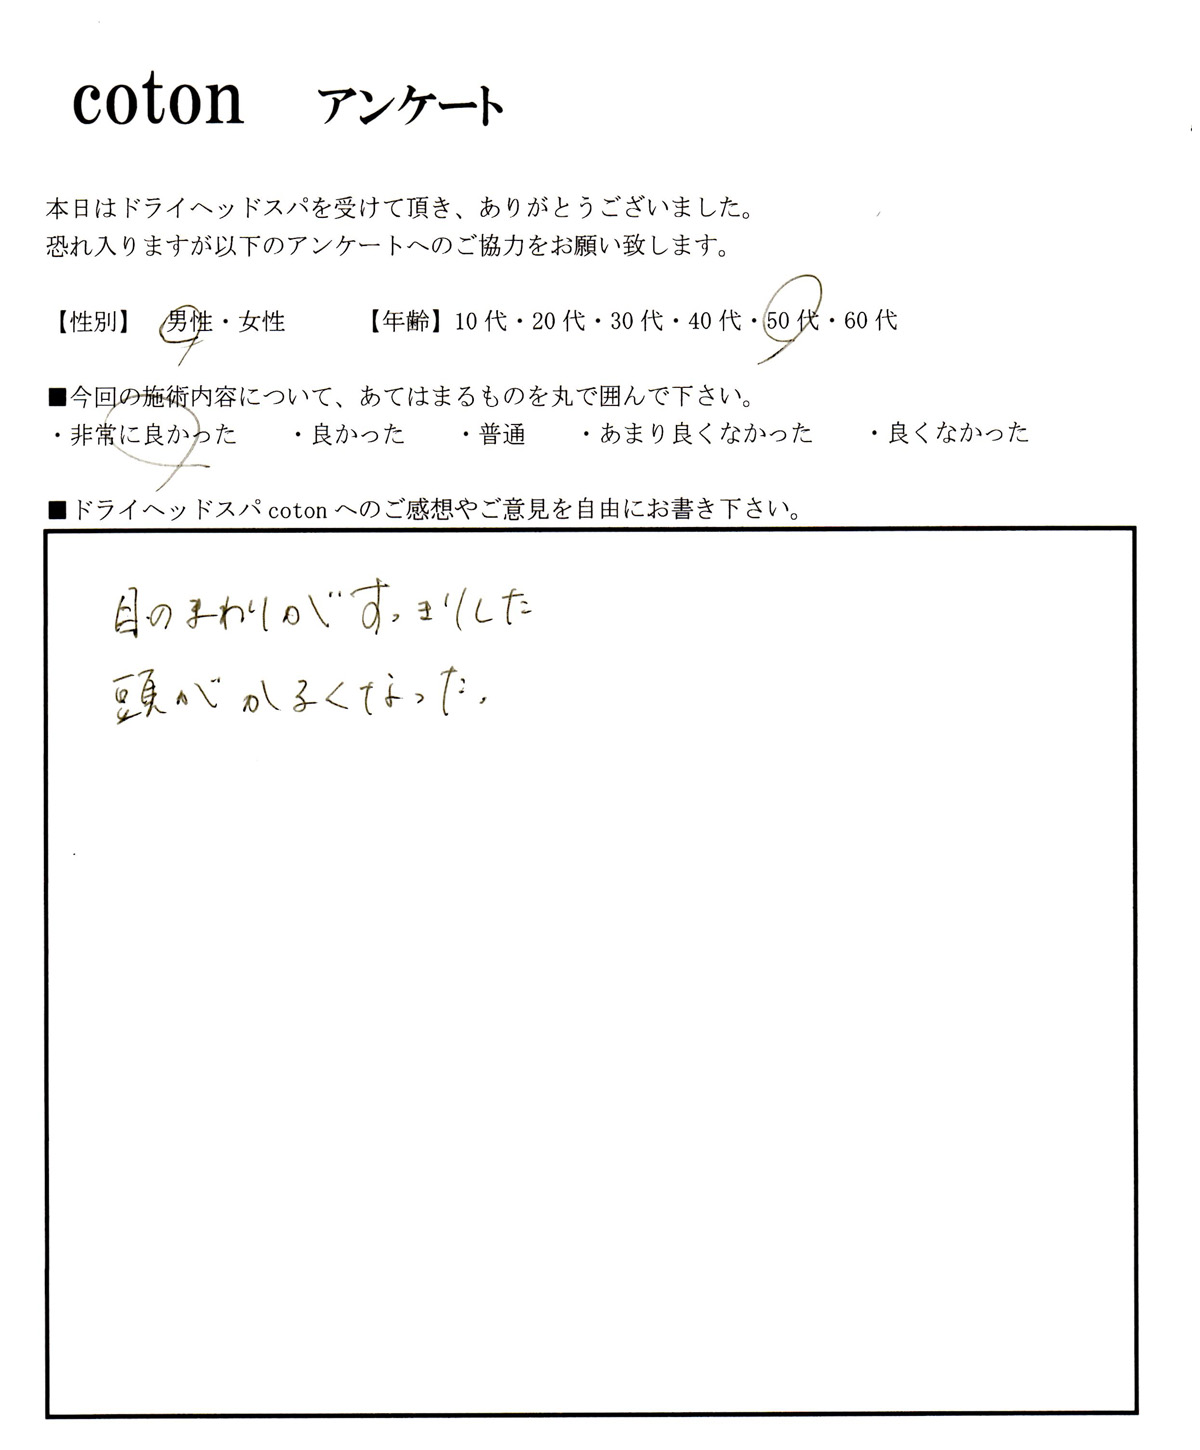 coton アンケート
本日はドライヘッドスパを受けて頂き、ありがとうございました。
恐れ入りますが以下のアンケートへのご協力をお願い致します。
【性別】 男性・女性 【年齢】10代・20代・30代・40代・50代・60代
■今回の施術内容について、あてはまるものを丸で囲んで下さい。
・非常に良かった ・良かった ・普通 ・あまり良くなかった ・良くなかった
■ドライヘッドスパcotonへのご感想やご意見を自由にお書き下さい。
目のまわりがすっきりした
頭がかるくなった。